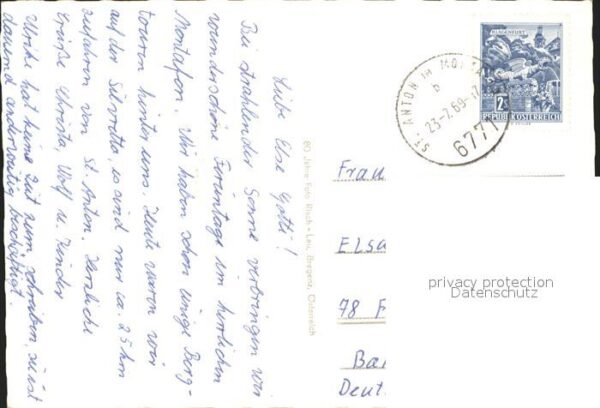 Liebe Else Götti!
Bei strahlender Sonne verbringen wir
wunderschöne Ferientage im herrlichen
Montafon. Wir haben schon einige Berg-
touren hinter uns. Heute waren wir
auf der Silvretta, es sind nur ca. 25 km
zufahren von St. Anton. Herzliche
Grüße Christa, Wolf u. Kinder
Ulrike hat keine Zeit zum schreiben, sie ist
dauernd anderweitig beschäftigt.
80 Jahre Foto Risch-Lau, Bregenz, Österreich
KLAGENFURT
2S
REPUBLIK ÖSTERREICH
ST. ANTON IM MONTAF
b
23-7.69-17
6771
Frau
Elsa
78 F
Ba
Deut
privacy protection
Datenschutz